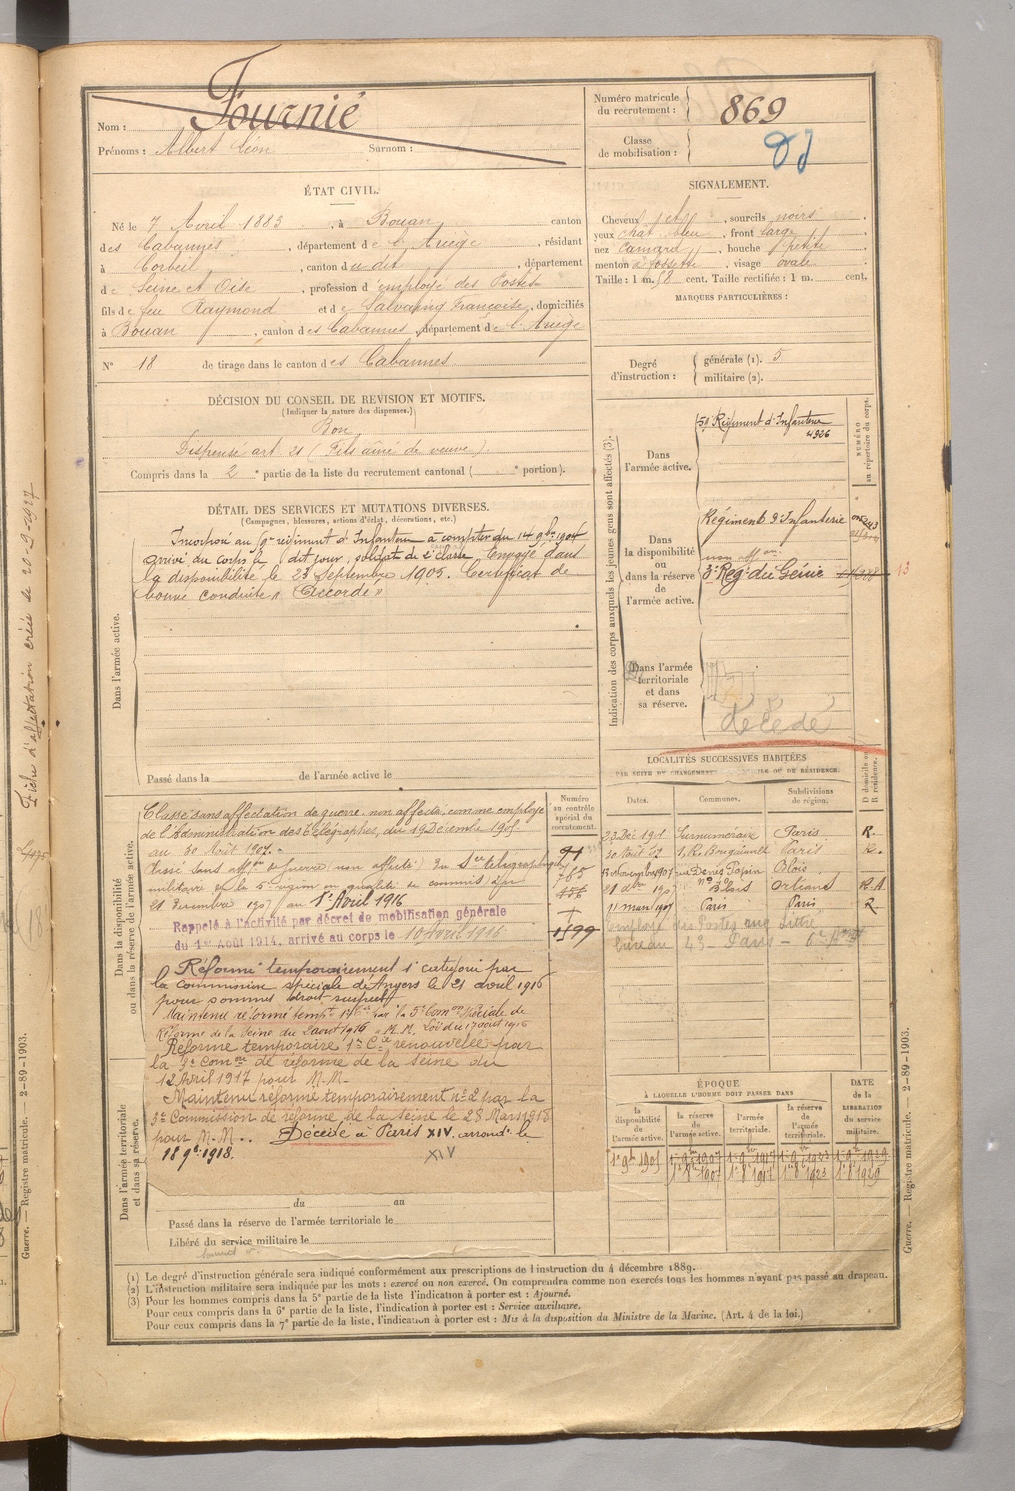 Nom : Fournié
Prénoms : Albert Léon Surnom :
Numéro matricule du recrutement : 869
Classe de mobilisation :
ÉTAT CIVIL.
Né le 7 Avril 1883, à Bouan, canton
des Cabannes, département de l'Ariège, résidant
à Corbeil, canton dudit, département
de Seine et Oise, profession d'employé des Postes
fils de feu Raymond et de Salvaing Françoise, domiciliés
à Bouan, canton des Cabannes, département de l'Ariège
N° 18 de tirage dans le canton des Cabannes
SIGNALEMENT.
Cheveux , sourcils noirs
yeux chat. bleu, front large
nez camard, bouche petite
menton à fossette, visage ovale
Taille : 1 m. 68 cent. Taille rectifiée : 1 m. cent.
MARQUES PARTICULIÈRES :
Degré d'instruction : générale (1). 5
militaire (2).
DÉCISION DU CONSEIL DE REVISION ET MOTIFS.
(Indiquer la nature des dispenses.)
Bon
Dispensé art. 21 (Fils aîné de veuve)
Compris dans la 2e partie de la liste du recrutement cantonal ( e portion).
DÉTAIL DES SERVICES ET MUTATIONS DIVERSES.
(Campagnes, blessures, actions d'éclat, décorations, etc.)
Dans l'armée active.
Incorporé au régiment d'Infanterie à compter du 14 9bre 1904
arrivé au corps le dit jour, soldat de 2e classe. Envoyé dans
la disponibilité le 23 Septembre 1905. Certificat de
bonne conduite "Accordé"
Passé dans la de l'armée active le
Indication des corps auxquels les jeunes gens sont affectés (3).
NUMÉRO au répertoire du corps.
Dans l'armée active.
Régiment d'Infanterie
4926
Dans la disponibilité ou dans la réserve de l'armée active.
Régiment d'Infanterie
3e Rég. du Génie
13
Dans l'armée territoriale et dans sa réserve.
décédé
LOCALITÉS SUCCESSIVES HABITÉES
PAR SUITE DE CHANGEMENTS DE DOMICILE OU DE RÉSIDENCE.
Dates. Communes. Subdivisions de région. D domicile ou R résidence.
23 Déc 1901 Surnuméraire Paris R.
30 Août 07 Paris R.
13 Novembre 1907 rue Denis Papin Blois
21 dbre 1907 Blois Orléans R.A.
11 mars 1909 Paris Paris R
Employé des Postes
Bureau 43 - Paris
Dans la disponibilité ou dans la réserve de l'armée active.
Numéro au contrôle spécial du recrutement.
Classé sans affectation de guerre, non affecté, comme employé
de l'Administration des Télégraphes, du 19 Décembre 1905
au 30 Août 1907.
Classé sans affon de guerre (non affecté) du Sce télégraphique
militaire de la 5e région en qualité de commis à partir
21 décembre 1907 au 1er Avril 1916
765
1599
Rappelé à l'activité par décret de mobilisation générale
du 1er Août 1914, arrivé au corps le 10 Avril 1916
Réformé temporairement 1e catégorie par
la commission spéciale d'Angers le 21 avril 1916
pour sommet droit suspect
Maintenu réformé tempre 1e Cie par la 5e Comon Spéciale de
Réforme de la Seine du 2 août 1916 M.M. Loi du 17 août 1916
Réforme temporaire 1e Cie renouvelée par
la 3e Comon de réforme de la Seine du
12 Avril 1917 pour M.M.
Maintenu réformé temporairement n° 2 par la
3e Commission de réforme de la Seine le 28 Mars 1918
pour M.M. Décédé à Paris XIV arrondt le
18 9bre 1918.
XIV
Dans l'armée territoriale et dans sa réserve.
du au
Passé dans la réserve de l'armée territoriale le
Libéré du service militaire le
ÉPOQUE
À LAQUELLE L'HOMME DOIT PASSER DANS
DATE de la LIBÉRATION du service militaire.
la disponibilité de l'armée active. la réserve de l'armée active. l'armée territoriale. la réserve de l'armée territoriale.
1er 9bre 1905 1er 9bre 1907 1er 9bre 1917 1er 9bre 1923 1er 9bre 1929
1er 8bre 1907 1er 8bre 1917 1er 8bre 1923 1er 8bre 1929
(1) Le degré d'instruction générale sera indiqué conformément aux prescriptions de l'instruction du 4 décembre 1889.
(2) L'instruction militaire sera indiquée par les mots : exercé ou non exercé. On comprendra comme non exercés tous les hommes n'ayant pas passé au drapeau.
(3) Pour les hommes compris dans la 5e partie de la liste l'indication à porter est : Ajourné.
Pour ceux compris dans la 6e partie de la liste, l'indication à porter est : Service auxiliaire.
Pour ceux compris dans la 7e partie de la liste, l'indication à porter est : Mis à la disposition du Ministre de la Marine. (Art. 4 de la loi.)
Guerre. — Registre matricule. — 2-89-1903.
Fiche d'affectation créée le 20-9-1927
Guerre. — Registre matricule. — 2-89-1903.